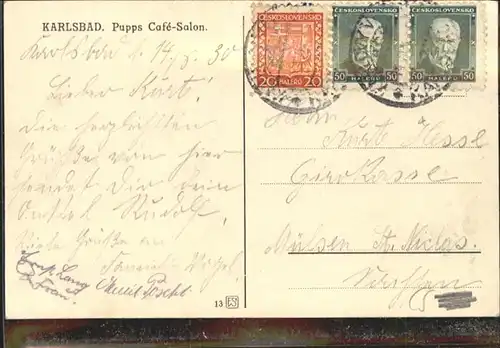 KARLSBAD. Pupps Café-Salon.
Karlsbad 14/8. 30
Lieber Kurte!
Die herzlichsten
Grüße von hier
sendet Dir Dein
Onkel Rudolf,
Viele Grüße an
Familie
u Frau
13
ČESKOSLOVENSKO
20 HALÉŘŮ 20
ČESKOSLOVENSKO
50 HALÉŘŮ 50
ČESKOSLOVENSKO
50 HALÉŘŮ 50
Herrn
Kurte Hesse
Girokasse
Mülsen St. Niclas.
Sachsen